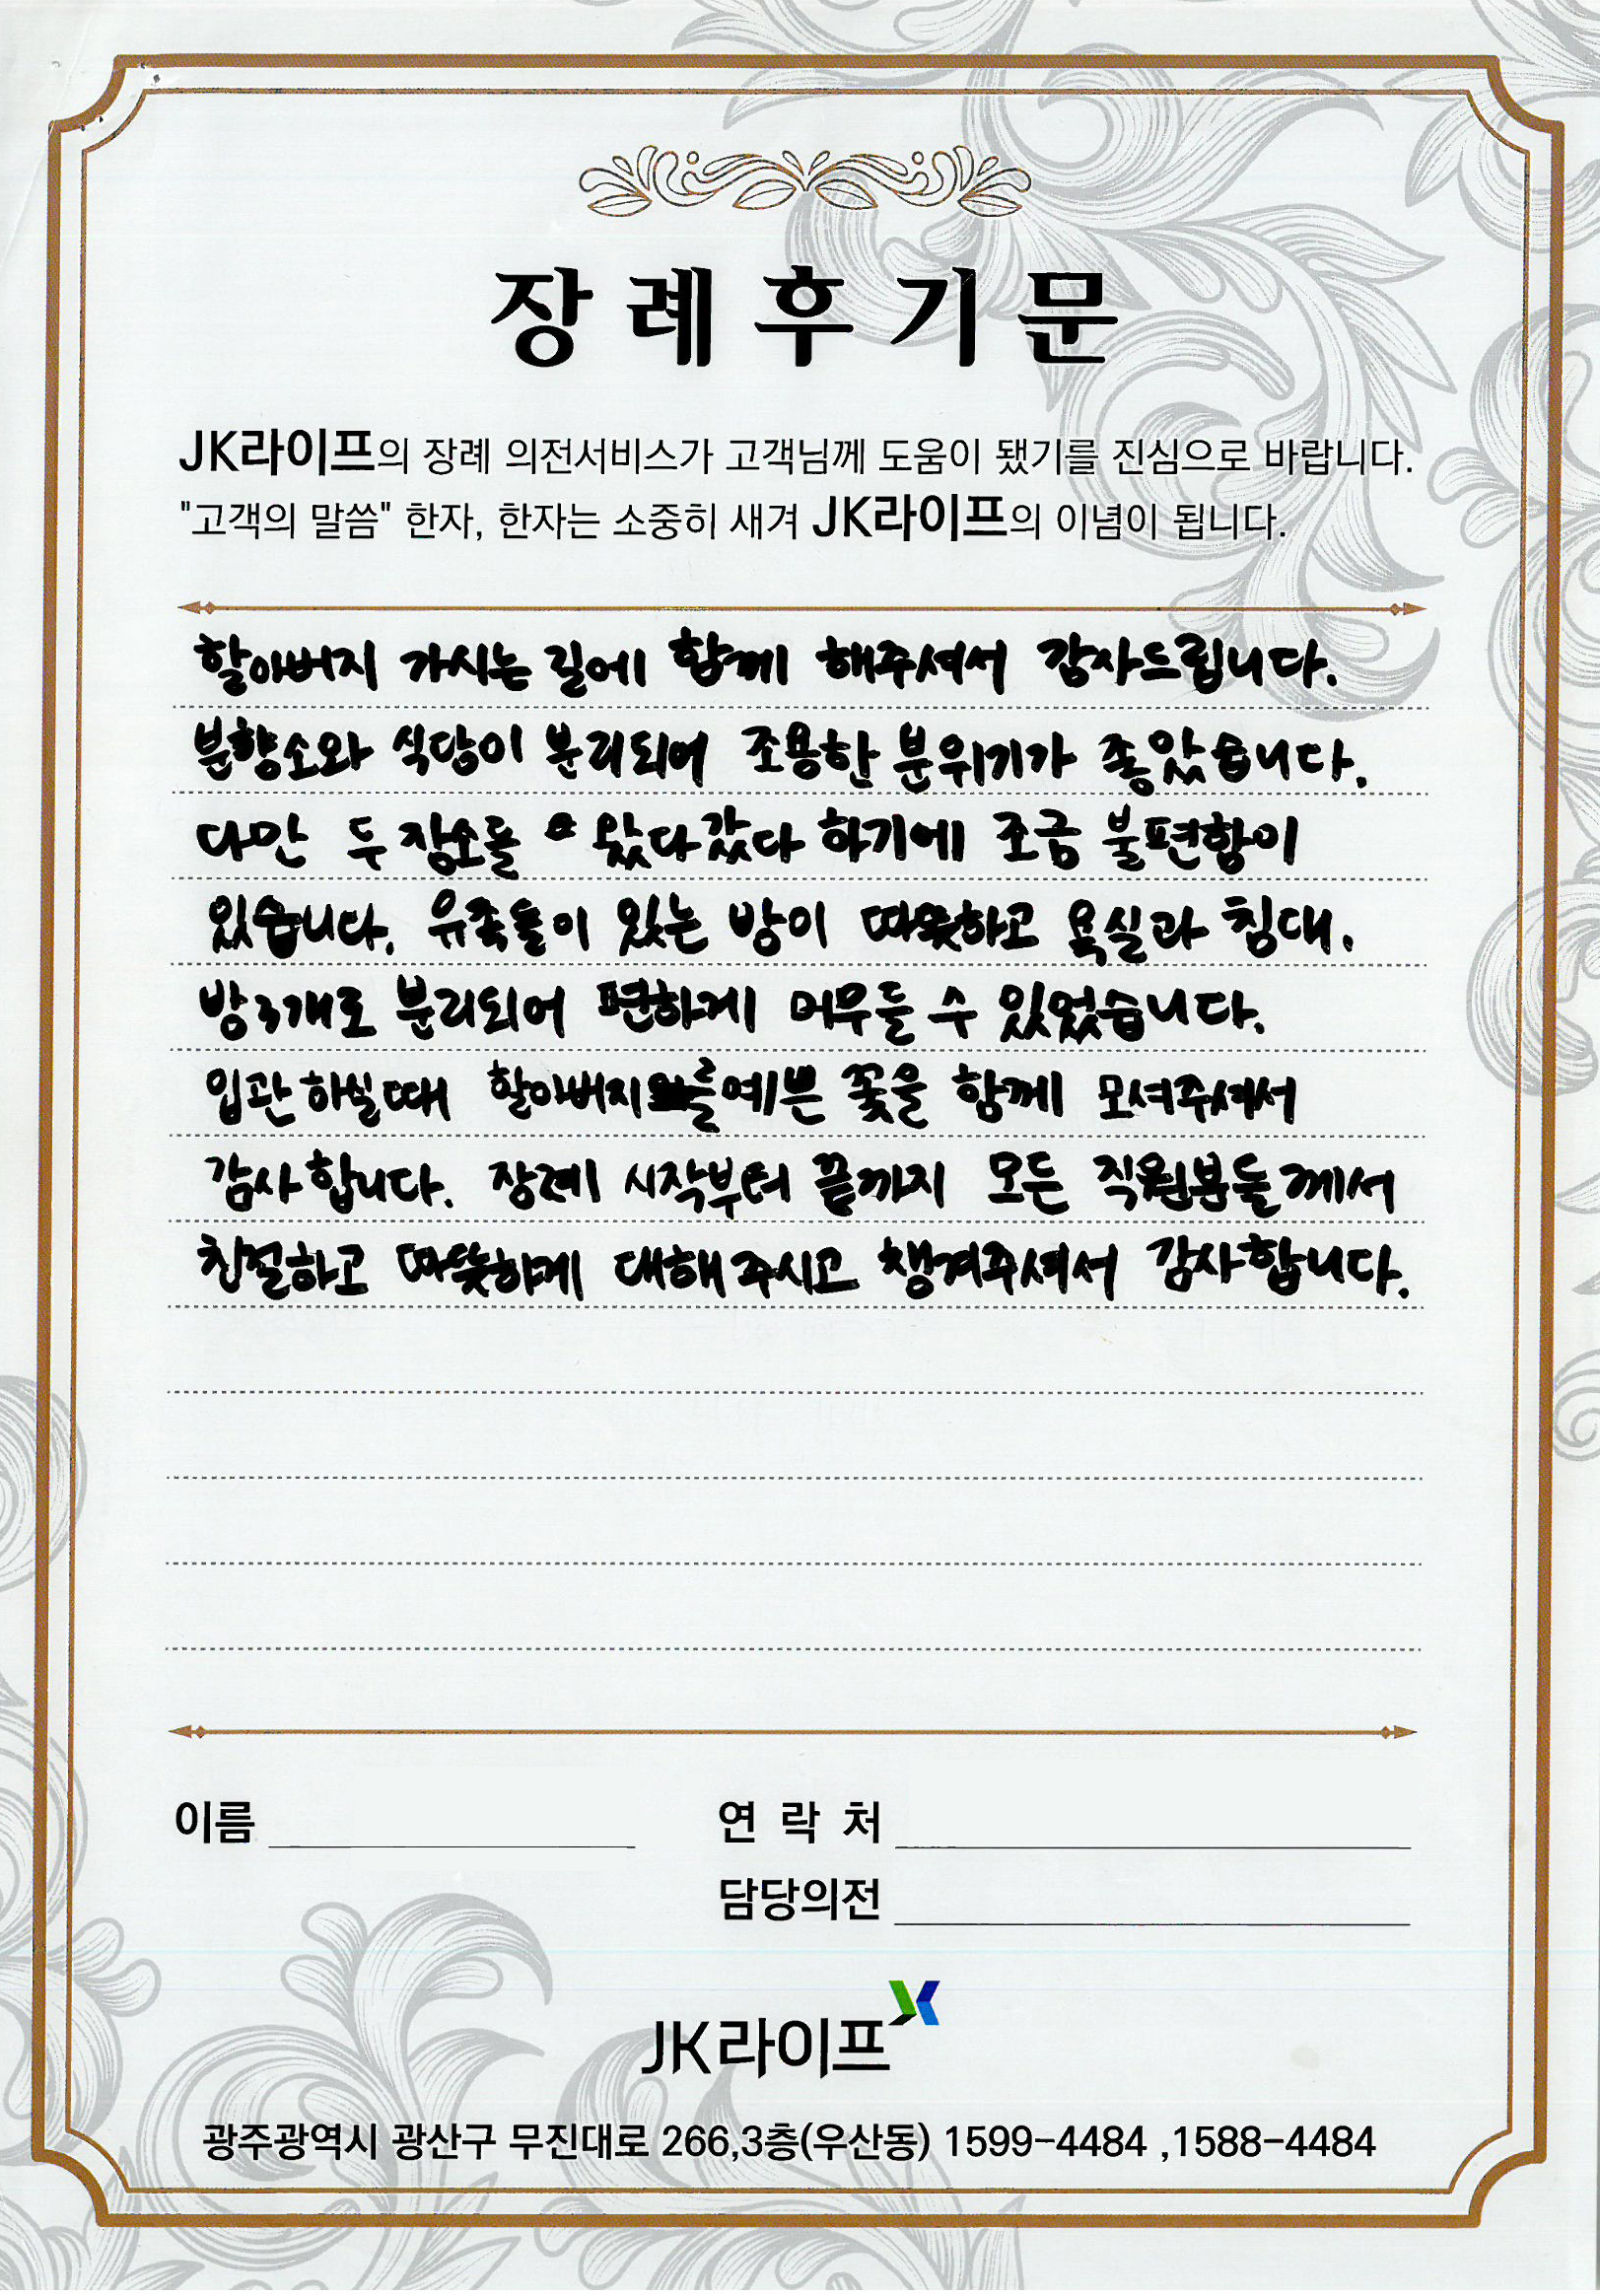 장례후기문
JK라이프의 장례 의전서비스가 고객님께 도움이 됐기를 진심으로 바랍니다.
"고객의 말씀" 한자, 한자는 소중히 새겨 JK라이프의 이념이 됩니다.
할아버지 가시는 길에 함께 해주셔서 감사드립니다.
분향소와 식당이 분리되어 조용한 분위기가 좋았습니다.
다만 두 장소를 왔다갔다 하기에 조금 불편함이
있습니다. 유족들이 있는 방이 따뜻하고 욕실과 침대.
방3개로 분리되어 편하게 머무를 수 있었습니다.
입관 하실때 할아버지를 예쁜 꽃을 함께 모셔주셔서
감사합니다. 장례 시작부터 끝까지 모든 직원분들께서
친절하고 따뜻하게 대해주시고 챙겨주셔서 감사합니다.
이름 연락처
담당의전
JK라이프
광주광역시 광산구 무진대로 266,3층(우산동) 1599-4484 ,1588-4484